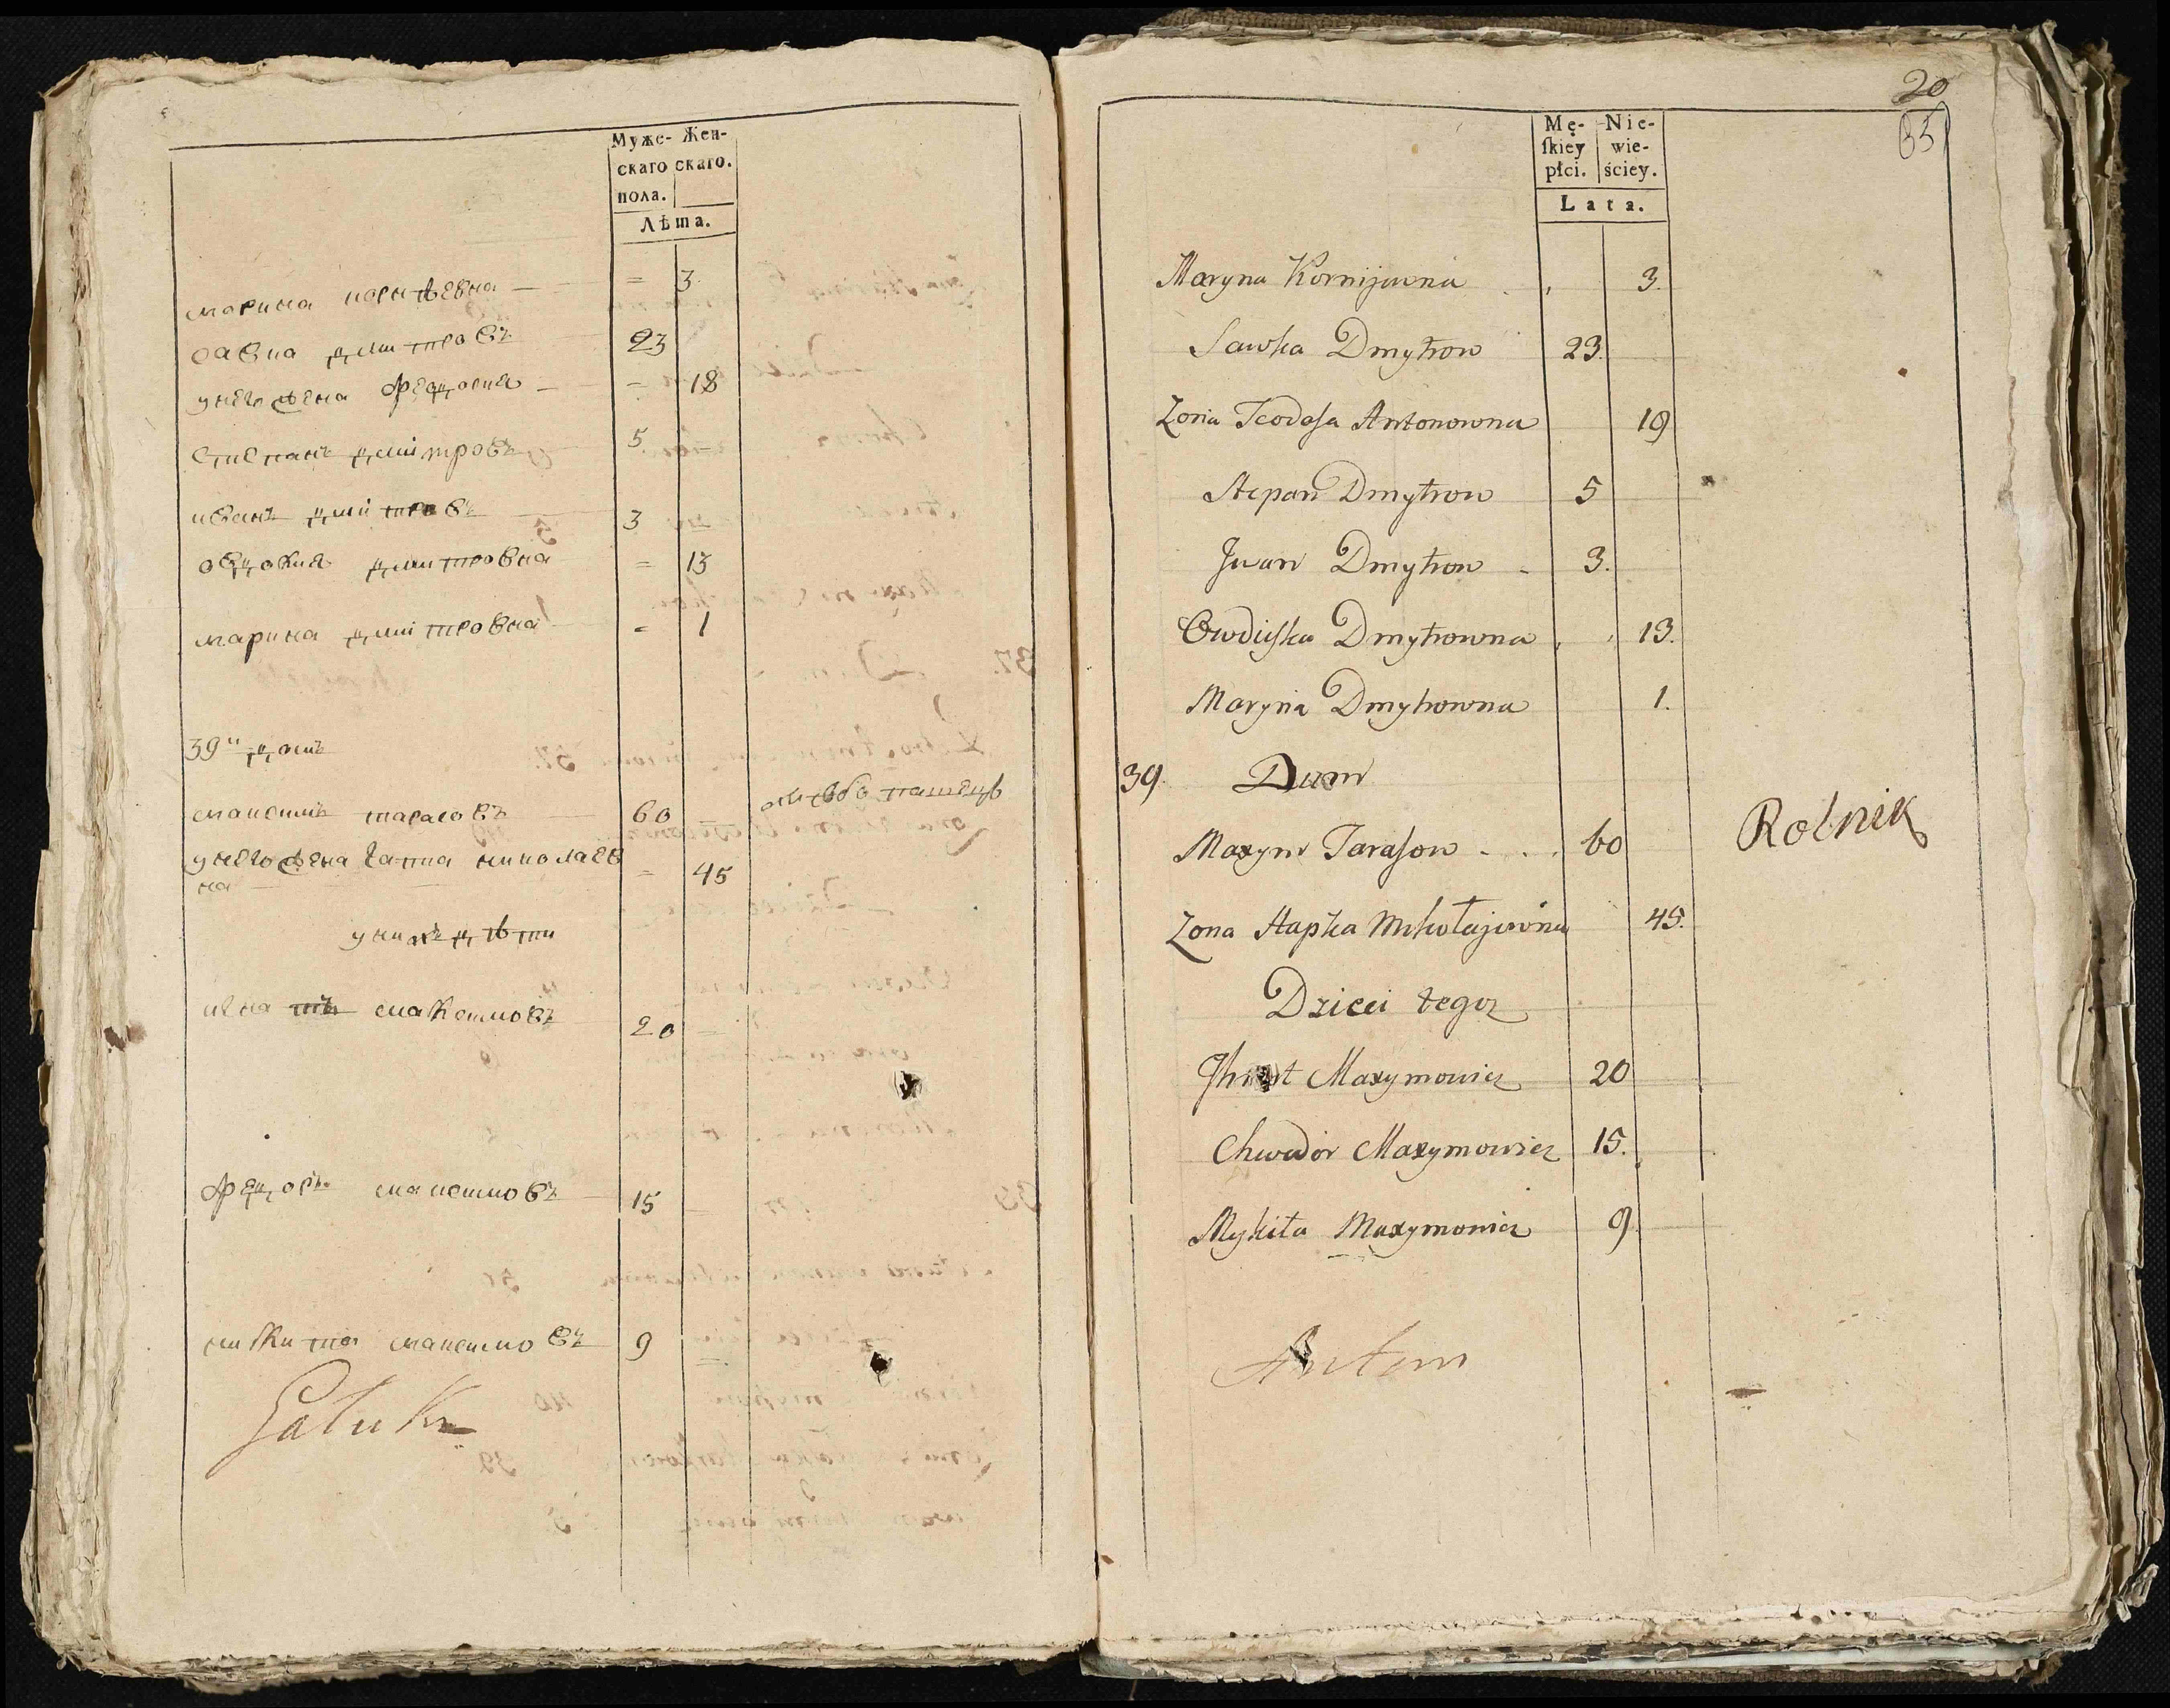 Муже- Жен-
скаго скаго.
пола.
Лѣта.
марина корнѣевна = 3
савка дмитровъ 23
унего жена федосия = 18
степанъ дмітровъ 5
иванъ дмітровъ 3
овдокия дмитровна = 13
марина дмітровна = 1
39й домъ
максимъ тарасовъ 60
унего жена гапка николаев = 45
на
унихъ дѣти
максимовъ 20
федоръ максимовъ 15
микита максимовъ 9
20
35
Mę- Nie-
ſkiey wie-
płci. ściey.
Lata.
Maryna Kornijowna 3.
Sawka Dmytrow 23.
Zona Teodosa Antonowna 19
Stepan Dmytrow 5
Jwan Dmytrow 3.
Owdiyska Dmytrowna 13.
Maryna Dmytrowna 1.
39. Dum
Maxym Tarasow 60 Rolnik
Zona Hapka Mikołajowna 45.
Dzieci tegoz
Maxymowicz 20
Chwedor Maxymowicz 15.
Mykita Maxymowicz 9